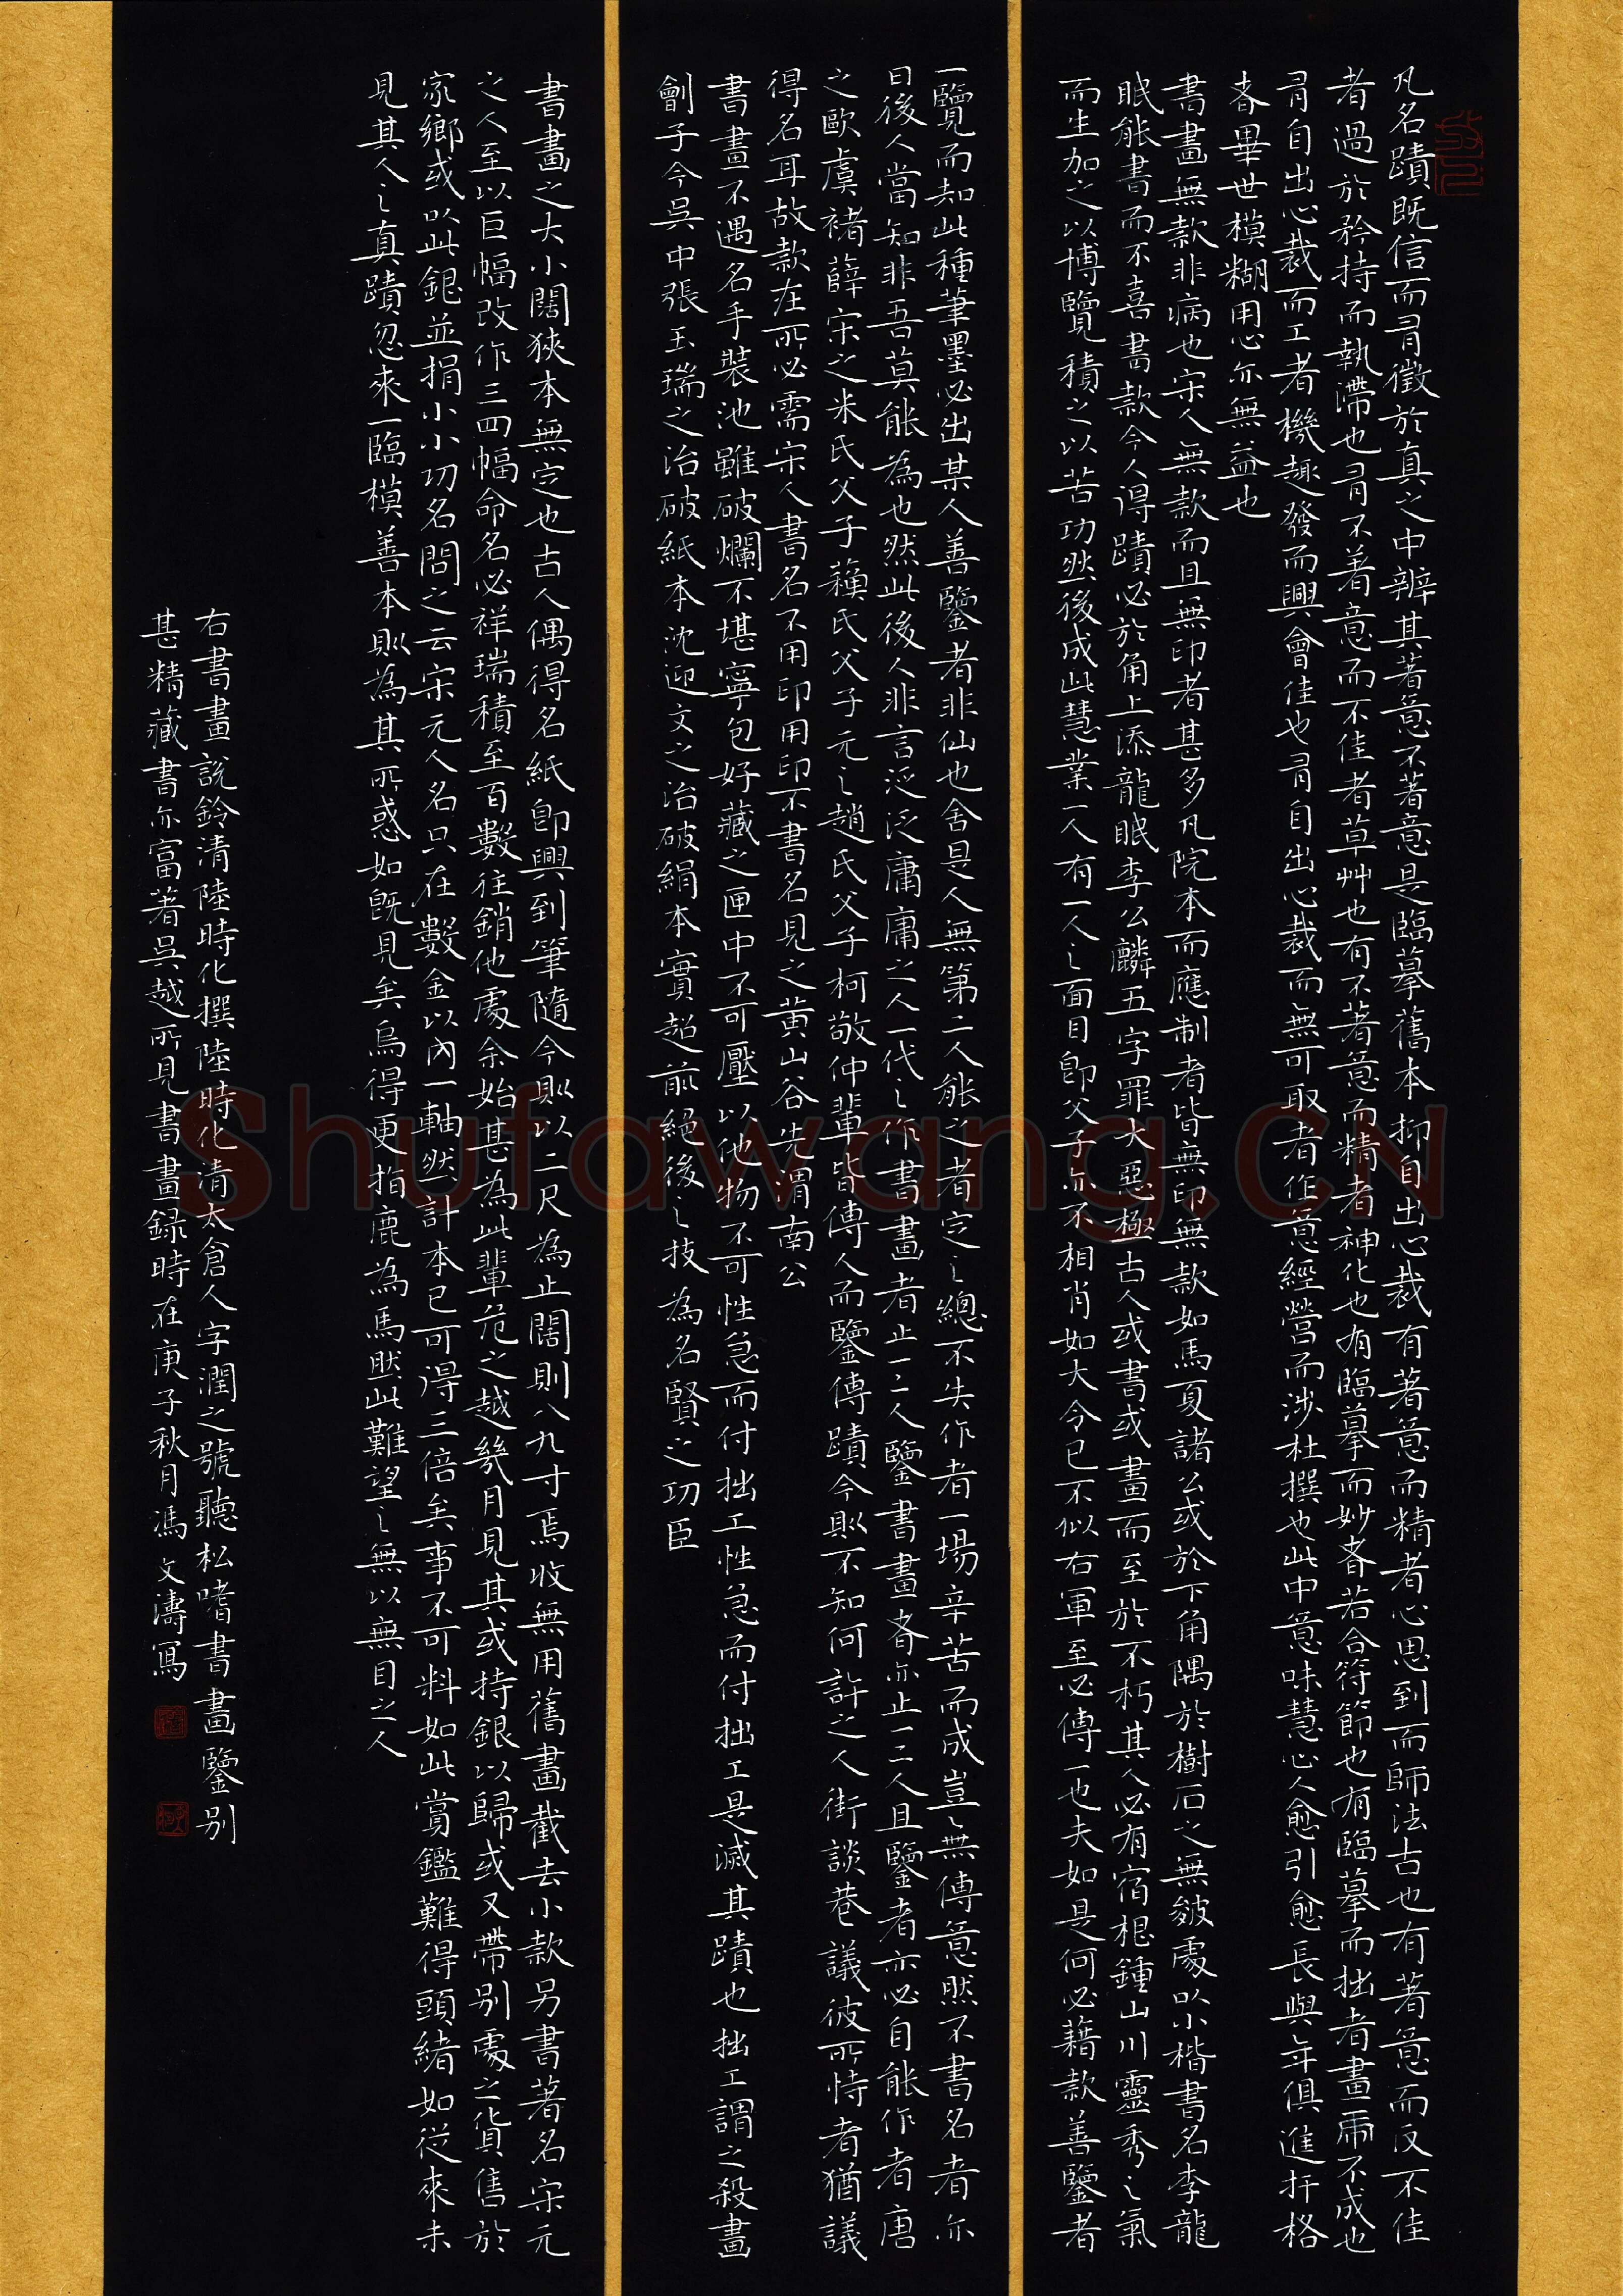 凡名蹟既信而有徵於真之中辨其著意不著意是臨摹舊本抑自出心裁有著意而精者心思到而師法古也有著意而反不佳
者過於矜持而執滯也有不著意而不佳者草草也有不著意而精者神化也有臨摹而妙者若合符節也有臨摹而拙者畫虎不成也
有自出心裁而工者機趣發而興會佳也有自出心裁而無可取者作意經營而涉杜撰也此中意味慧心人愈引愈長與年俱進扞格
者畢世模糊用心亦無益也
書畫無款非病也宋人無款而且無印者甚多凡院本而應制者皆無印無款如馬夏諸公或於下角隅於樹石之無皴處以小楷書名李龍
眠能書而不喜書款今人得蹟必於角上添龍眠李公麟五字罪大惡極古人或書或畫而至於不朽其人必有宿根鍾山川靈秀之氣
而生加之以博覽積之以苦功然後成此慧業一人有一人之面目即父子亦不相肖如大令已不似右軍至必傳一也夫如是何必藉款善鑒者
一覽而知此種筆墨必出某人善鑒者非仙也舍是人無第二人能之者定之總不失作者一場辛苦而成豈豈無傳意然不書名者亦
日後人當知非吾莫能為也然此後人非言泛泛庸庸之人一代之作書畫者止一二人鑒書畫者亦止一二人且鑒者亦必自能作者唐
之歐虞褚薛宋之米氏父子蘓氏父子元之趙氏父子柯敬仲輩皆傳人而鑒傳蹟今則不知何許之人街談巷議彼所恃者猶議
得名耳故款在所必需宋人書名不用印用印不書名見之黃山谷先謂南公
書畫不遇名手裝池雖破爛不堪寧包好藏之匣中不可壓以他物不可性急而付拙工性急而付拙工是滅其蹟也拙工謂之殺畫
劊子今吳中張玉瑞之治破紙本沈迎文之治破絹本實超前絕後之技為名賢之功臣
書畫之大小闊狹本無定也古人偶得名紙即興到筆隨今則以二尺為止闊則八九寸焉收無用舊畫截去小款另書著名宋元
之人至以巨幅改作三四幅命名必祥瑞積至百數往銷他處余始甚為此輩危之越幾月見其或持銀以歸或又帶別處之貨售於
家鄉或以此銀並捐小小功名問之云宋元人名只在數金以內一軸然計本已可得三倍矣事不可料如此賞鑑難得頭緒如從來未
見其人之真蹟忽來一臨模善本則為其所惑如既見矣烏得更指鹿為馬然此難望之無以無目之人
右書畫說鈴清陸時化撰陸時化清太倉人字潤之號聽松嗜書畫鑒別
甚精藏書亦富著吳越所見書畫録時在庚子秋月馮文濤寫
Shufawang.CN